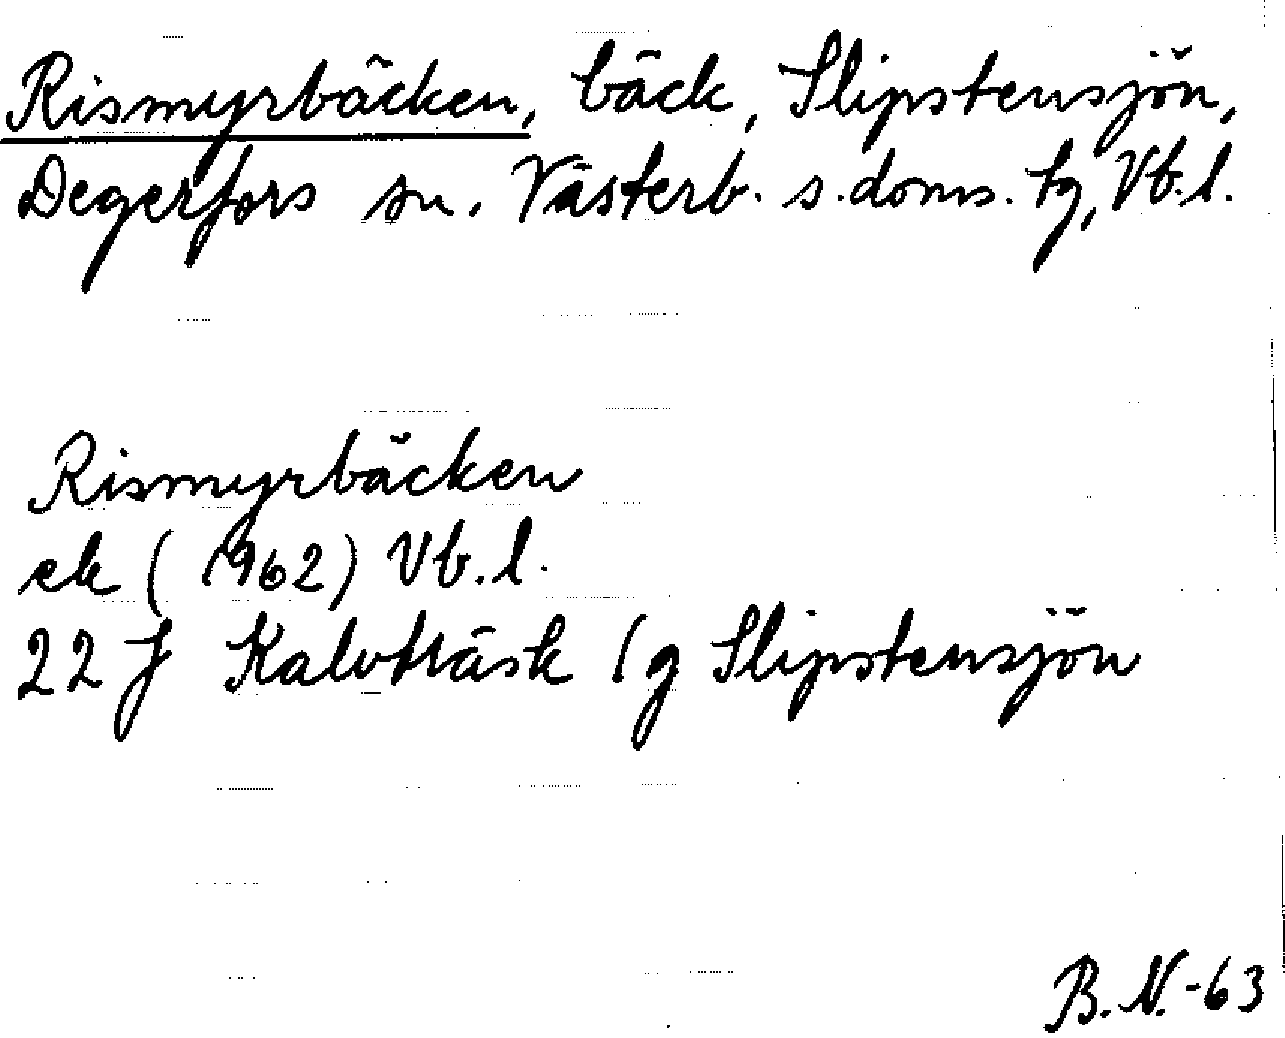 Rismyrbäcken, bäck, Slipstensjön,
Degerfors sn. Västerb. s. doms. tg, Vb. l.
Rismyrbäcken
ek (1962) Vb. l.
22 J Kalvträsk lg Slipstensjön
B. N.-63